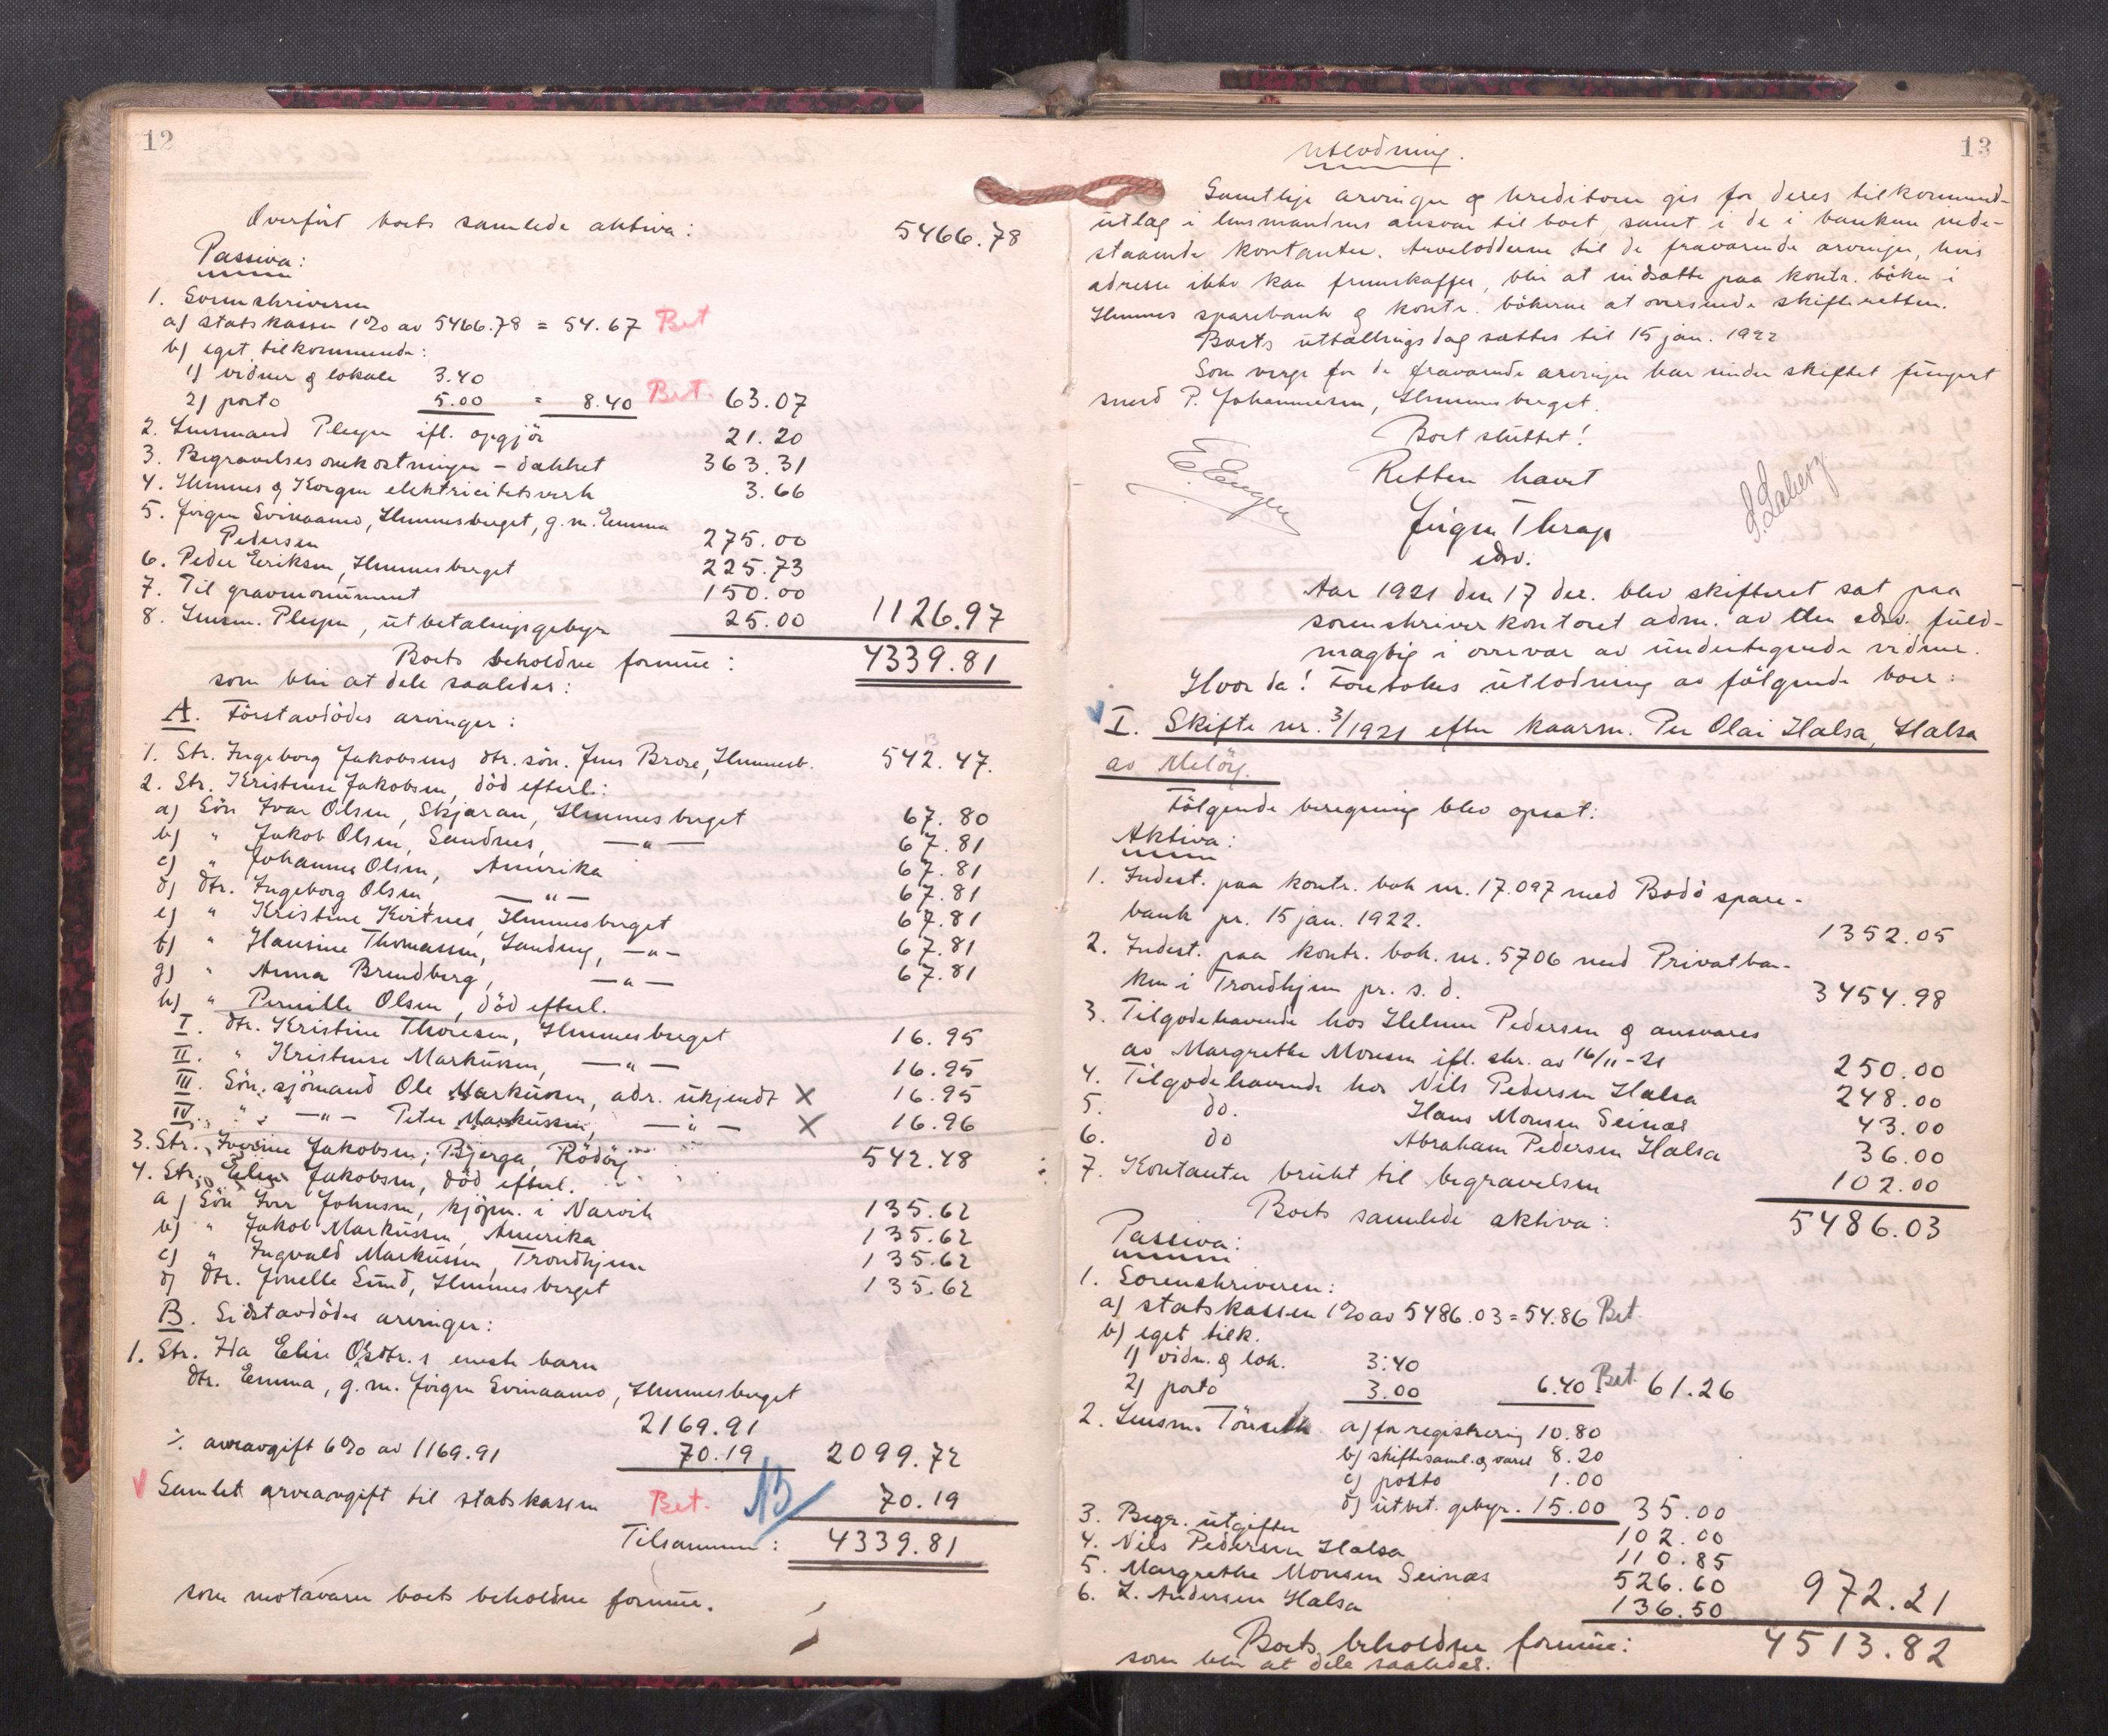 12
Overført boets samlede aktiva: 5466.78
Passiva:
1. Sorenskriveren
a) statskassen 1% av 5466.78 = 54.67 Bet
b) eget tilkommende:
1) vidner & lokale 3.40
2) porto 5.00 = 8.40 Bet. 63.07
2. Lensmand Pleym ifl. opgjör 21.20
3. Begravelsesomkostninger – dækket 363.31
4. Hemnes & Korgen elektricitetsverk 3.66
5. Jörgen Svinaamo, Hemnesberget, g. m. Emma
Pedersen 275.00
6. Peder Eriksen, Hemnesberget 225.73
7. Til gravmonument 150.00
8. Lensm. Pleym, utbetalingsgebyr 25.00 1126.97
Boets beholdne formue: 4339.81
som blir at dele saaledes:
A. Förstavdödes arvinger:
1. Str. Ingeborg Jakobsens dtr. sön. Jens Brose, Hemnesb. 542.47.
13
2. Str. Kristense Jakobsen, död efterl:
a) Sön Ivar Olsen, Skjæran, Hemnesberget 67.80
b) " Jakob Olsen, Sandnes, —"— 67.81
c) " Johannes Olsen, Amerika 67.81
d) dtr. Ingeborg Olsen, —"— 67.81
e) " Kristine Kvitnes, Hemnesberget 67.81
f) " Hansine Thomassen, Sandneg, —"— 67.81
g) " Anna Brendberg, —"— 67.81
h) " Pernille Olsen, död efterl.
I. dtr. Kristine Thoresen, Hemnesberget 16.95
II. " Kristense Markussen, —"— 16.95
III. Sön, sjömand Ole Markussen, adr. ukjendt × 16.95
IV. " —"— Peter Markussen, —"— × 16.96
3. Str. Iverine Jakobsen, Bjerga, Rödöy 542.48
4. Str. Elen Jakobsen, död efterl.
a) Sön Iver Johnsen, kjöpm. i Narvik 135.62
b) " Jakob Markussen, Amerika 135.62
c) " Ingvald Markussen, Trondhjem 135.62
d) dtr. Jonelle Sund, Hemnesberget 135.62
B. Sidstavdödes arvinger:
1. Str. Ida Elise Olsdtr.s eneste barn
dtr. Emma, g. m. Jörgen Svinaamo, Hemnesberget
2169.91
÷ arveavgift 6% av 1169.91 70.19 2099.72
Samlet arveavgift til statskassen Bet. 13 70.19
Tilsammen: 4339.81
som motsvarer boets beholdne formue.
13
Utlodning.
Samtlige arvinger & kreditorer gis for deres tilkommende
utlæg i lensmandens ansvar til boet samt i de i banken inde-
staaende kontanter. Arveloddene til de fraværende arvinger, hvis
adresse ikke kan fremskaffes, blir at indsætte paa kontr. böker i
Hemnes sparebank & kontr. bökerne at oversende skifteretten.
Boets utbetalingsdag sættes til 15 jan. 1922
Som verge for de fraværende arvinger har under skiftet fungert
smed P. Johannesen, Hemnesberget.
Boet sluttet!
Retten hævet
Jörgen Thrap
edsv.
Aar 1921 den 17 dec. blev skifteret sat paa
sorenskriverkontoret adm. av den edsv. fuld-
mægtig i overvær av undertegnede vidner.
Hvorda! Foretokes utlodning av fölgende boer:
I. Skifte nr. 3/1921 efter kaarm. Per Olai Halsa, Halsa
av Melöy.
Fölgende beregning blev opsat:
Aktiva:
1. Indest. paa kontr. bok nr. 17.097 med Bodö spare-
bank pr. 15 jan. 1922. 1352.05
2. Indest. paa kontr. bok. nr. 5706 med Privatban-
ken i Trondhjem pr. s. d. 3454.98
3. Tilgodehavende hos Helmer Pedersen & ansvares
av Margrethe Monsen ifl. skr. av 16/11-21 250.00
4. Tilgodehavende hos Nils Pedersen Halsa 248.00
5. do. Hans Monsen Seinæs 43.00
6. do Abraham Pedersen Halsa 36.00
7. Kontanter brukt til begravelsen 102.00
Boets samlede aktiva: 5486.03
Passiva:
1. Sorenskriveren:
a) statskassen 1% av 5486.03 = 54.86 Bet.
b) eget tilk.
1) vidn. & lok. 3.40
2) porto 3.00 6.40 Bet 61.26
2. Lensm. Tönseth a) for registrering 10.80
b) skiftesaml. & varsl 8.20
c) porto 1.00
d) utbet. gebyr. 15.00 35.00
3. Begr. utgifter 102.00
4. Nils Pedersen Halsa 110.85
5. Margrethe Monsen Seinæs 526.60
6. L. Andersen Halsa 136.50 972.21
Boets beholdne formue: 4513.82
som blir at dele saaledes.